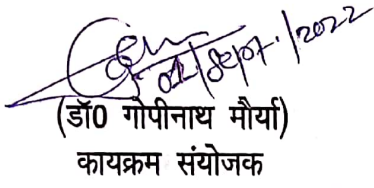 02/Sep./2022
(डॉ0 गोपीनाथ मौर्या)
कायक्रम संयोजक